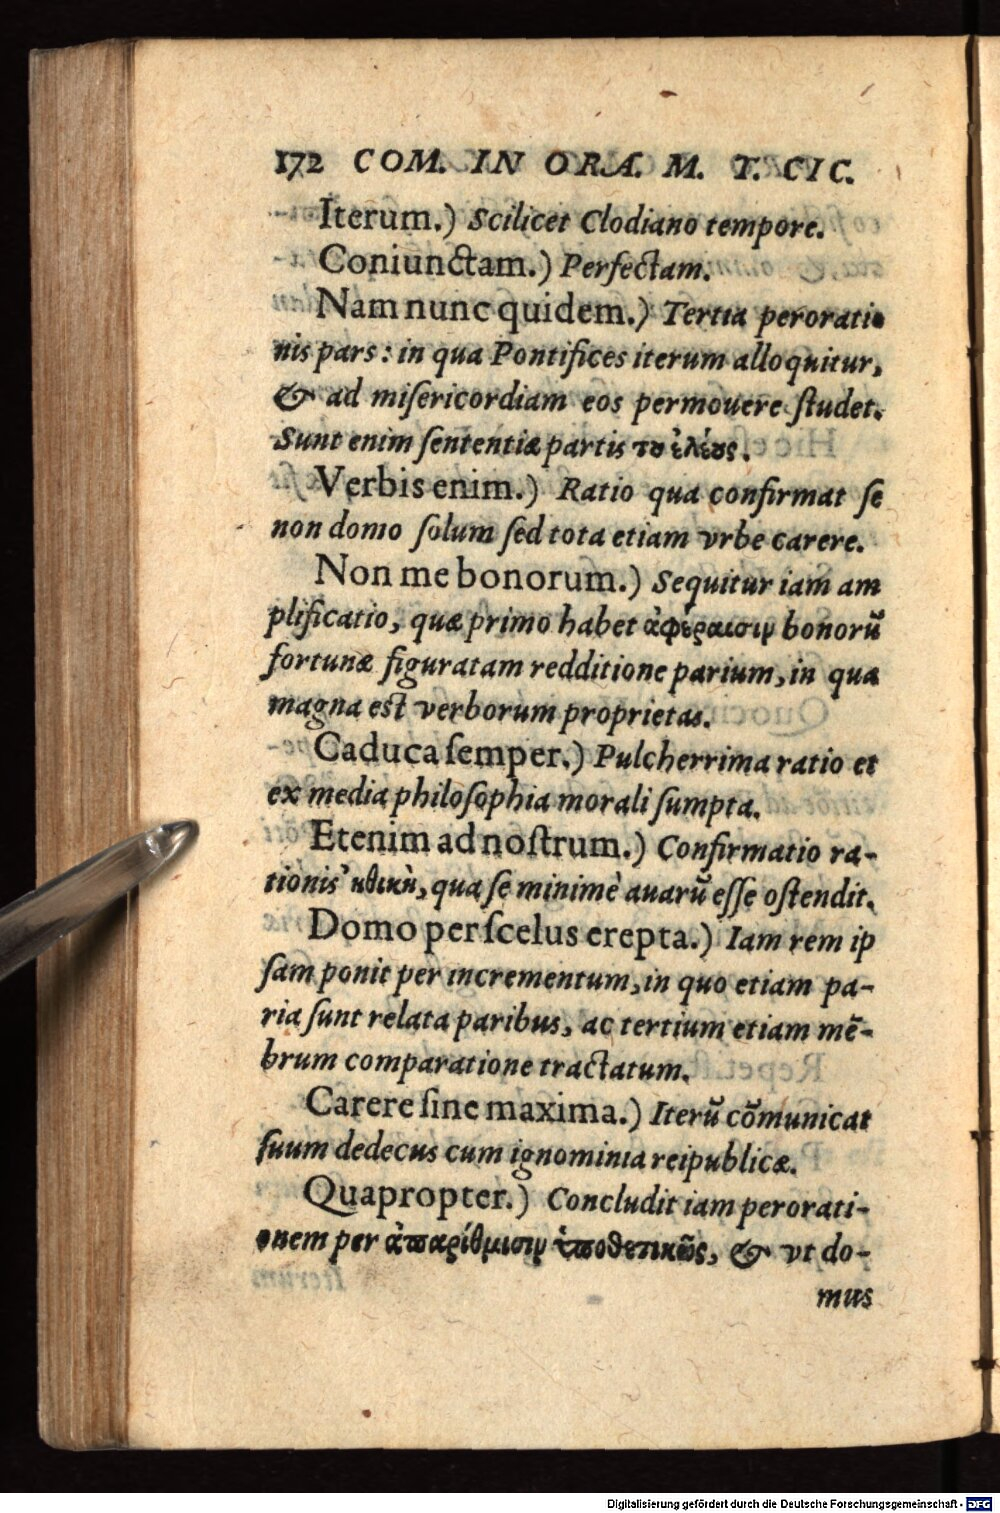 172 COM. IN ORA. M. T. CIC.
Iterum.) Scilicet Clodiano tempore.
Coniunctam.) Perfectam.
Nam nunc quidem.) Tertia peroratio
nis pars: in qua Pontifices iterum alloquitur,
& ad miſericordiam eos permouere ſtudet.
Sunt enim ſententiæ partis το ἐλέος.
Verbis enim.) Ratio qua confirmat ſe
non domo ſolum ſed tota etiam vrbe carere.
Non me bonorum.) Sequitur iam am
plificatio, quæ primo habet ἀφέραισιν bonorũ
fortunæ figuratam redditione parium, in qua
magna est verborum proprietas.
Caduca ſemper.) Pulcherrima ratio et
ex media philoſophia morali ſumpta.
Etenim ad noſtrum.) Confirmatio ra-
tionis ἠθικὴ, qua ſe minimè auarũ eſſe oſtendit.
Domo per ſcelus erepta.) Iam rem ip
ſam ponit per incrementum, in quo etiam pa-
ria ſunt relata paribus, ac tertium etiam mẽ-
brum comparatione tractatum.
Carere ſine maxima.) Iterũ cõmunicat
ſuum dedecus cum ignominia reipublicæ.
Quapropter.) Concludit iam perorati-
onem per ἀπαρίθμισιν ὑποθετικῶς, & vt do-
mus
Digitalisierung gefördert durch die Deutsche Forschungsgemeinschaft - DFG